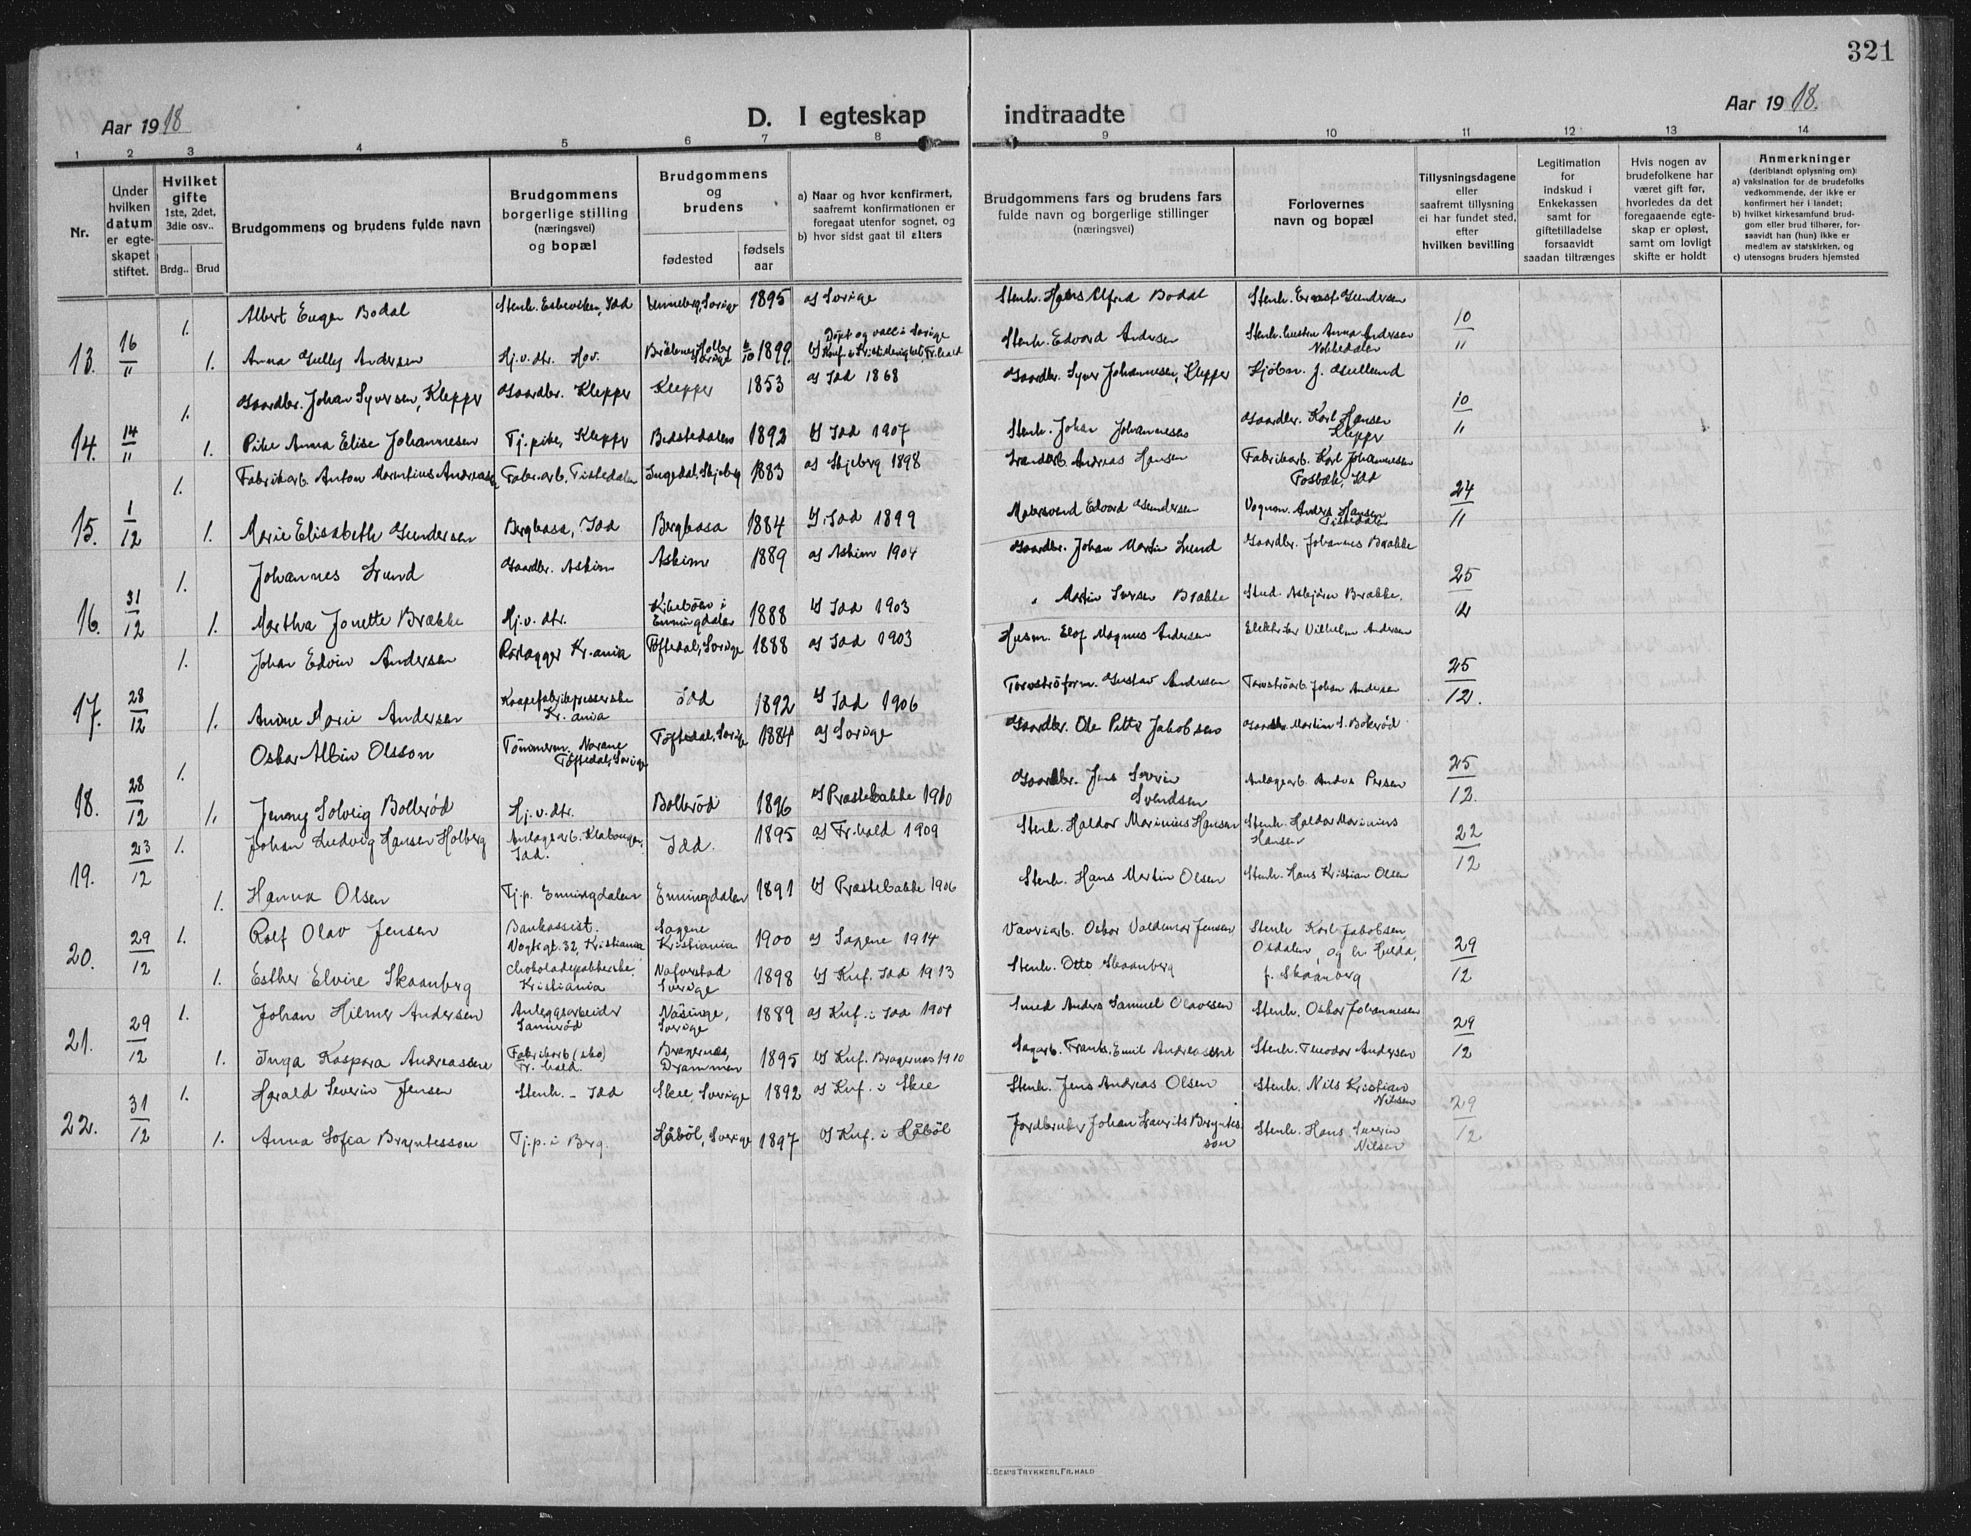 321
Aar 1918
D. I egteskap
indtraadte
Aar 1918.
1 2 3 4 5 6 7 8 9 10 11 12 13 14
Nr.
Under hvilken datum er egteskapet stiftet.
Hvilket gifte
1ste, 2det, 3die osv..
Brdg.. Brud
Brudgommens og brudens fulde navn
Brudgommens borgerlige stilling (næringsvei) og bopæl
Brudgommens og brudens
fødested
fødsels aar
a) Naar og hvor konfirmert, saafremt konfirmationen er foregaat utenfor sognet, og
b) hvor sidst gaat til alters
Brudgommens fars og brudens fars fulde navn og borgerlige stillinger (næringsvei)
Forlovernes navn og bopæl
Tillysningsdagene eller saafremt tillysning ei har fundet sted, efter hvilken bevilling
Legitimation for indskud i Enkekassen samt for giftetilladelse forsaavidt saadan tiltrænges
Hvis nogen av brudefolkene har været gift før, hvorledes da det foregaaende egteskap er opløst, samt om lovligt skifte er holdt
Anmerkninger (deriblandt oplysning om):
a) vaksination for de brudefolks vedkommende, der ikke er konfirmert her i landet;
b) hvilket kirkesamfund brudgom eller brud tilhører, forsaavidt han (hun) ikke er medlem av statskirken, og
c) utensogns bruders hjemsted
1. Albert Eugen Bodal Stenh. Esbeviken, Idd Sverige 1895 a) Sverige Stenh. Hans Alfred Bodal Stenh. Ernst Gundersen
13. 16/11 1. Anna Gully Andersen Hj.v.dtr. Hov. Sverige 6/10 1899. b) Døpt og vacc. i Sverige Konf. i Fr.hald Stenh. Edvard Andersen Stenh. hustru Anna Andersen 10/11
1. Gaardbr. Johan Syversen, Klepper Gaardbr. Klepper Klepper 1853 a) Idd 1868 Gaardbr. Syver Johannesen, Klepper Kjøbm. J. Gullund
14. 14/11 1. Pike Anna Elise Johannesen Tj.pike, Klepper Bedstedalen 1892 b) Idd 1907 Stenh. Johan Johannesen Gaardbr. Karl Hansen Klepper 10/11
1. Fabrikarb. Anton Martinius Andreasen Fabr.arb. Tistedalen Ingedal, Skjeberg 1883 a) Skjeberg 1898 Andreas Hansen Fabrikarb. Karl Johannesen Fosbæk, Idd
15. 1/12 1. Marie Elisabeth Gundersen Bergkasa, Idd Bergkasa 1884 b) Idd 1899 Malersvend Edvard Gundersen Vognm. Anders Hansen Tistedalen 24/11
1. Johannes Lund Gaardbr. Askim Askim 1889 a) Askim 1904 Gaardbr. Johan Martin Lund Gaardbr. Johannes Brække
16. 31/12 1. Martha Jonette Brække Hj.v.dtr. i Enningdalen 1888 b) Idd 1903 " Martin Iversen Brække Stud. Asbjørn Brække. 25/12
1. Johan Edvin Andersen Rørlægger Kr.ania Töftedal, Sverige 1888 a) Idd 1903 Husm. Elof Magnus Andersen Elektriker Vilhelm Andersen
17. 28/12 1. Anine Marie Andersen Kr.ania Idd 1892 b) Idd 1906 Torvströform. Gustav Andersen Torvströarb. Johan Andersen 25/12.
1. Oskar Albin Olsson Tömmerm. Norane Töftedal, Sverige Töftedal, Sverige 1884 a) Sverige Gaardbr. Ole Petter Jakobsen Gaardbr. Martin S. Bokerød
18. 28/12 1. Jenny Solveig Bollerød Hj.v.dtr. Bollerød 1896 b) Prestebakke 1910 Gaardbr. Jens Severin Svendsen Anlægsarb. Anders Persen 25/12.
19. 23/12 1. Johan Ludvig Hansen Holberg Anlægsarb. Idd. Idd. 1895 a) Fr.hald 1909 Stenh. Haldor Marinius Hansen Stenh. Haldor Marinius Hansen 22/12
1. Hanna Olsen Tj.p. Enningdalen Enningdalen 1891 b) Prestebakke 1906 Stenh. Hans Martin Olsen Stenh. Hans Kristian Olsen
20. 29/12 1. Rolf Olav Jensen Bankassist. Vogtsgt. 32, Kristiania Sagene Kristiania 1900 a) Sagene 1914 Oskar Valdemar Jensen Stenh. Karl Jakobsen Osdalen, og hr. Helda, f. Skaanberg 29/12
1. Esther Elvire Skaanberg Kristiania Naverstad Sverige 1898 b) Knf. Idd 1913 Stenh. Otto Skaanberg
21. 29/12 1. Johan Hilmer Andersen Anleggsarbeider Näsinge, Sverige 1889 a) Knf. i Idd 1904 Smed Anders Samuel Olavesen Stenh. Oskar Johannesen 29/12
1. Inga Kaspara Andreassene Fabrikarb (sko) Fr.hald. Bragernæs, Drammen 1895 b) Knf. Bragernæs 1910 Sagarb. Frants Emil Andreassene Stenh. Theodor Andersen
22. 31/12 1. Harald Severin Jensen Stenh. - Idd Skee, Sverige 1892 a) Knf. i Skee Stenh. Jens Andreas Olsen Stenh. Nils Kristian Nilsen 29/12
1. Anna Sofia Bryntesson Tj.p. i Berg. Håbøl, Sverige 1897 b) Knf. i Håbøl Jordbruker Johan Laurits Bryntesson Stenh. Hans Severin Nilsen
SEM'S TRYKKERI, FR.HALD